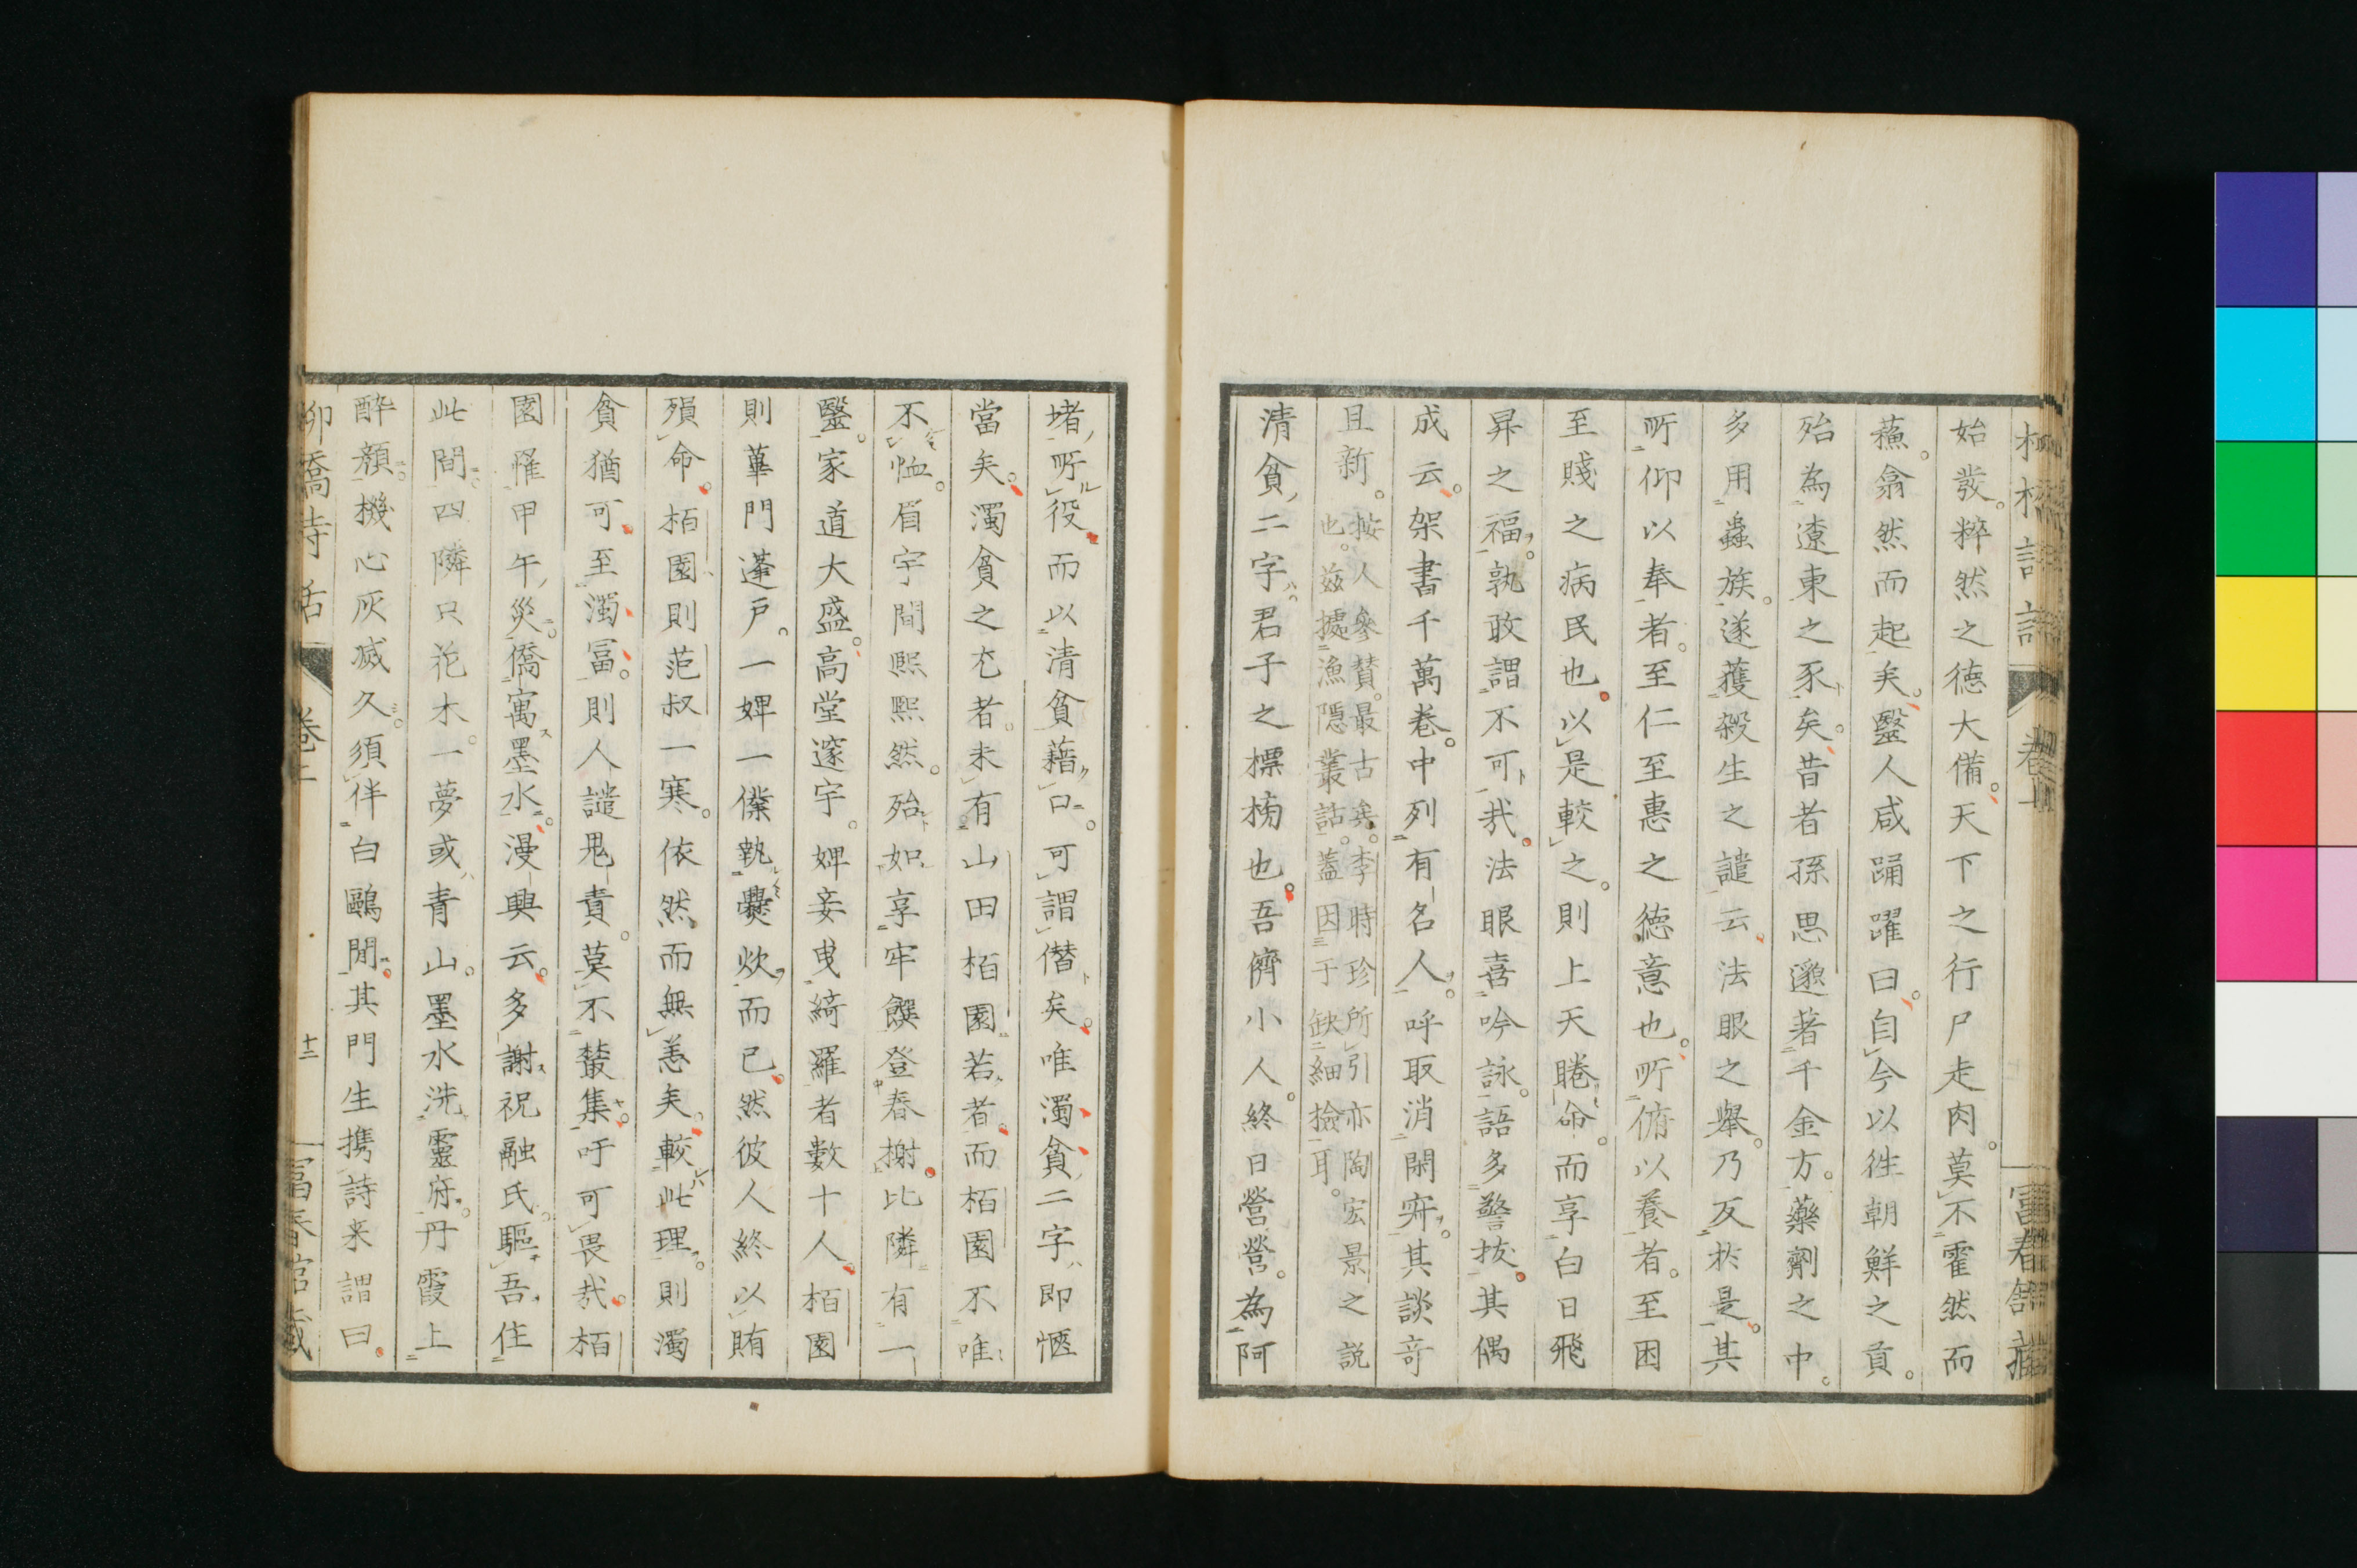 始發。粹然之德大備。天下之行尸走肉。莫不霍然而
蘓。翕然而起矣。醫人咸踊躍曰。自今以往朝鮮之貢。
殆為遼東之豕矣。昔者孫思邈著千金方。藥劑之中。
多用蟲族。遂獲殺生之譴云。法眼之舉。乃反於是。其
所仰以奉者。至仁至惠之德意也。所俯以養者。至困
至賤之病民也。以是較之。則上天睠命。而享白日飛
昇之福。孰敢謂不可哉。法眼喜吟詠。語多警拔。其偶
成云。架書千萬卷。中列有名人。呼取消閑寂。其談奇
且新。按人參贊。最古矣。李時珍所引亦陶宏景之説
也。茲據漁隱叢話。蓋因于缺細撿耳。
清貧二字。君子之標榜也。吾儕小人。終日營營。為阿
堵所役。而以清貧藉口。可謂僭矣。唯濁貧二字。即愜
當矣。濁貧之尤者。未有山田栢園若者。而栢園不唯
不恤。眉宇間熙熙然。殆如享牢饌登春榭。比隣有一
醫。家道大盛。高堂邃宇。婢妾曳綺羅者數十人。栢園
則蓽門蓬戶。一婢一傔執爨炊而已。然彼人終以賄
殞命。栢園則范叔一寒。依然而無恙矣。較此理。則濁
貧猶可。至濁富。則人譴鬼責。莫不蝟集。吁可畏哉。栢
園罹甲午災。僑寓墨水。漫興云。多謝祝融氏。驅吾住
此間。四隣只花木。一夢或青山。墨水洗靈府。丹霞上
醉顏。機心灰滅久。須伴白鷗閒。其門生携詩来謂曰。
柳橋詩話
卷上
十二
冨春舘藏